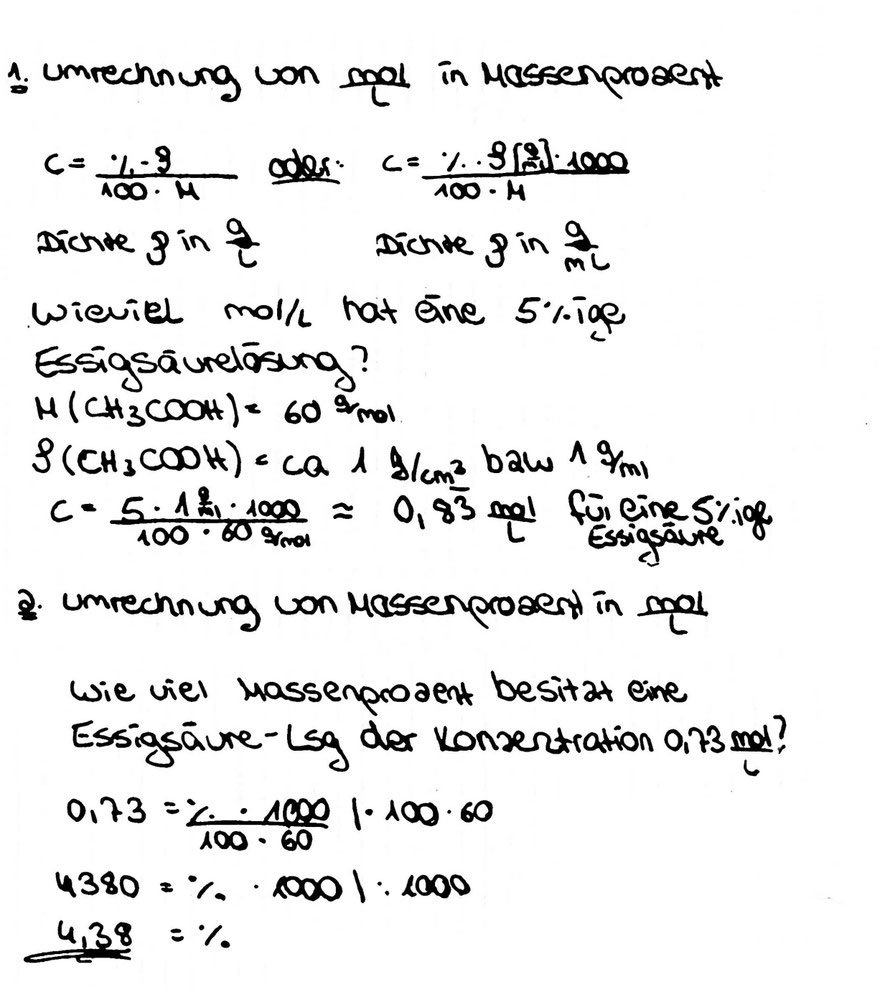 1. Umrechnung von mol/L in Massenprozent
c = %·ρ / 100·M oder: c = %·ρ[g/ml]·1000 / 100·M
Dichte ρ in g/L Dichte ρ in g/mL
Wieviel mol/L hat eine 5%ige
Essigsäurelösung?
M(CH3COOH) = 60 g/mol
ρ(CH3COOH) = ca 1 g/cm² bzw 1 g/ml
c = 5·1 g/ml·1000 / 100·60 g/mol ≈ 0,83 mol/L für eine 5%ige
Essigsäure
2. Umrechnung von Massenprozent in mol/L
Wie viel Massenprozent besitzt eine
Essigsäure-Lsg der Konzentration 0,73 mol/L?
0,73 = %·1000 / 100·60 |·100·60
4380 = %·1000 |:1000
4,38 = %